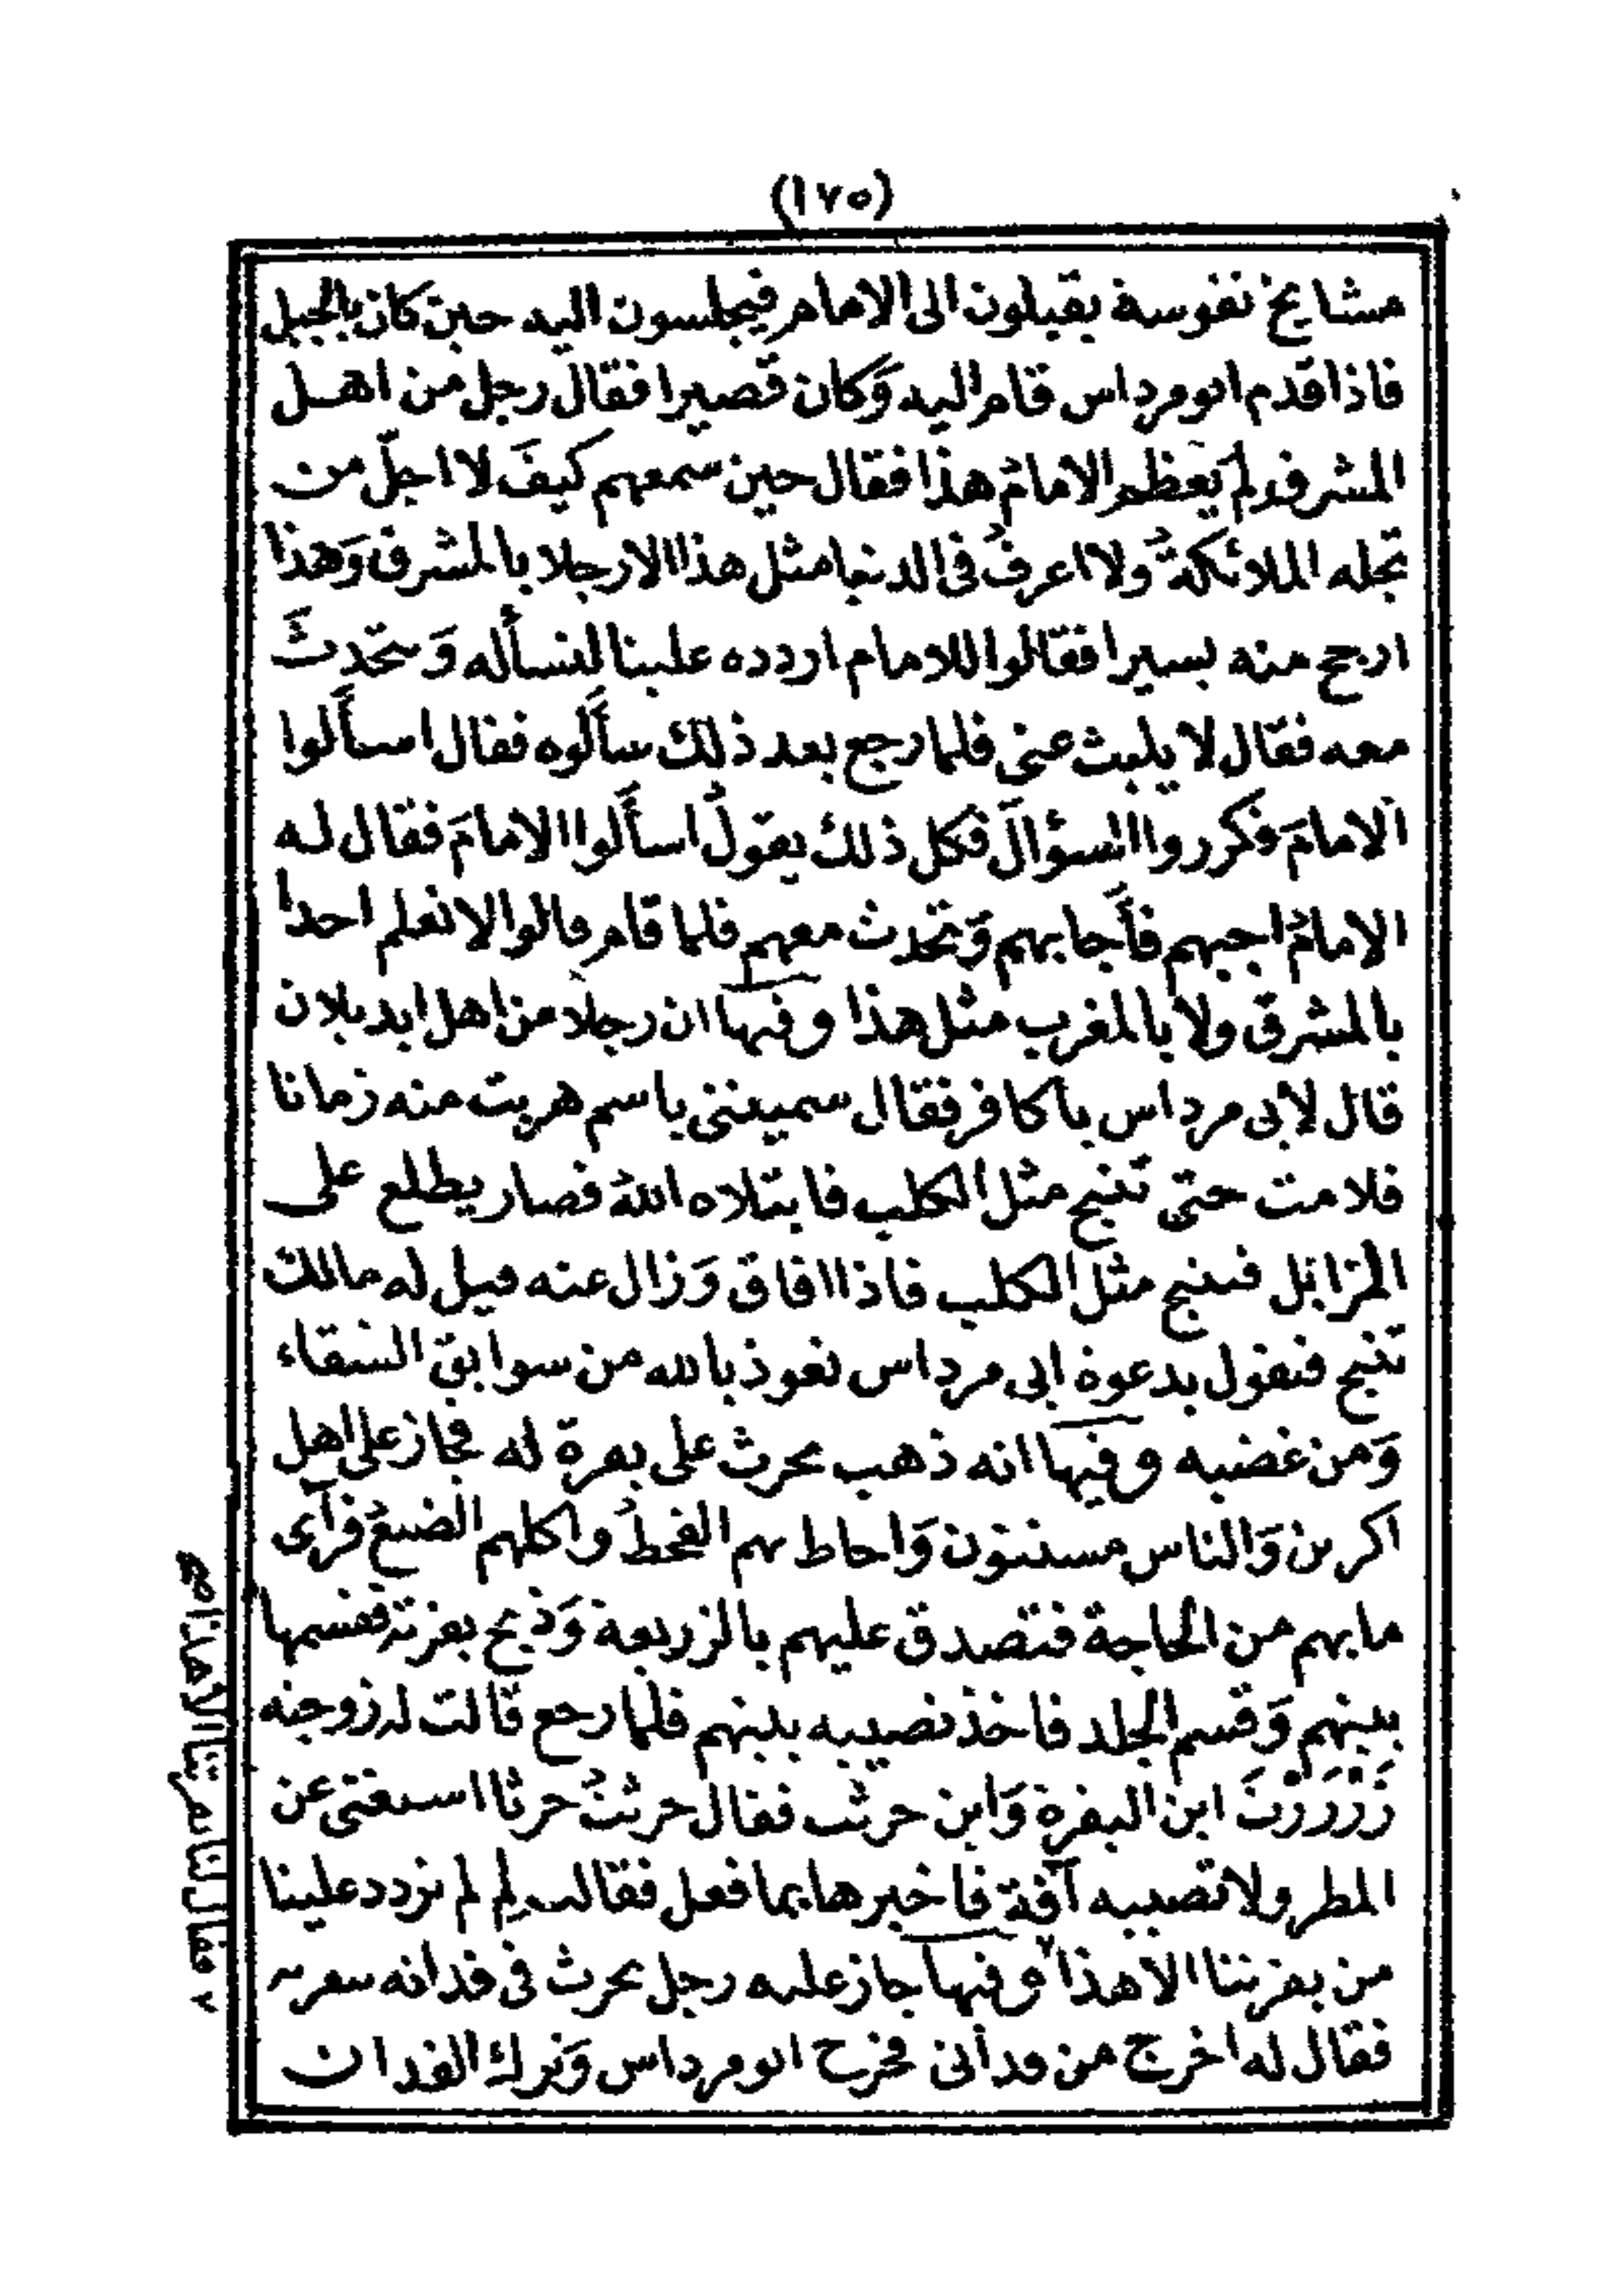 (١٧٥)
مشايخ نفوسة يقبلون الى الامام فيجلسون اليه حين كان بالجبل
فاذا قدم ابو مرداس قام اليه وَكان قصيرا فقال رجل من اهل
المشرق لم يَعظم الامامُ هذا فقال حين سمعهم كيفَ لا اجلّ من
تجله الملائكةُ ولا اعرفُ فى الدنيا مثل هذا الا رجلا بالمشرق وَهذا
ارجح منه يسيرا فقالوا للامام اردده علينا لنسأله وَنتحدثَ
معه فقال لا يلبث عنى فلما رجع بعد ذلك سألوه فقال اسألوا
الامامَ فكرروا السؤالَ فكل ذلك يقولُ اسألوا الامامَ فقال له
الامامُ اجبهم فأجابهم وَتحدث معهم فلما قام قالوا لا نعلم احدا
بالمشرق ولا بالمغرب مثل هذا وفيها ان رجلا من اهل ابديلان
قال لأبى مرداس يا كافر فقال سميتنى باسم هربت منه زمانا
فلا مت حتى تنبح مثل الكلب فابتلاه اللهُ فصار يطلع على
المزابل فينبح مثل الكلب فاذا افاق وَزال عنه قيل له مالك
تنبح فيقول بدعوة ابى مرداس نعوذ بالله من سوابق الشقاء
وَمن غضبه وفيها انه ذهب يحرث على بقرة له فجاز على اهل
اكرين وَالناس مسنتون وَاحاط بهم القحطُ واكلهم الضبعُ فرآى
ما بهم من الحاجة فتصدق عليهم بالزريعة وَذبح بقرته فقسمها
بينهم وَقسم الجلد فاخذ نصيبه بينهم فلما رجع قالت له زوجته
زَرْرَرْتَ اين البقرة وَاين حرثت فقال حرثتُ حرثا استغنى عن
المطر ولا تصيبه آفة فاخبرها بما فعل فقالت لِم لم تزدد علينا
من بقرتنا الا هذا ٢ وفيها جاز عليه رجل يحرث فى فدانه
فقال له اخرج من فدانى فخرج ابو مرداس وَترك الفدان